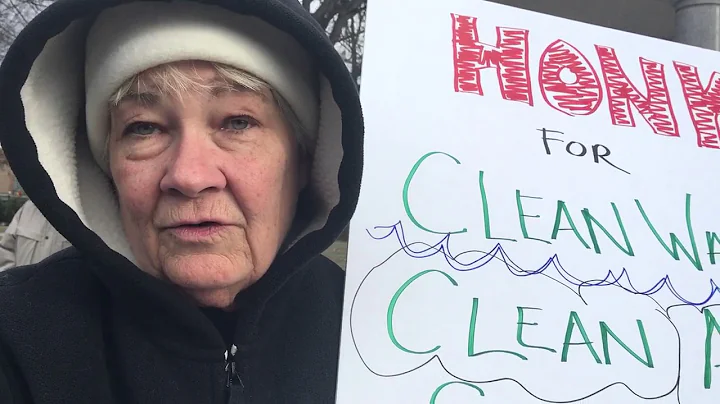 HONK
FOR
CLEAN WA
CLEAN